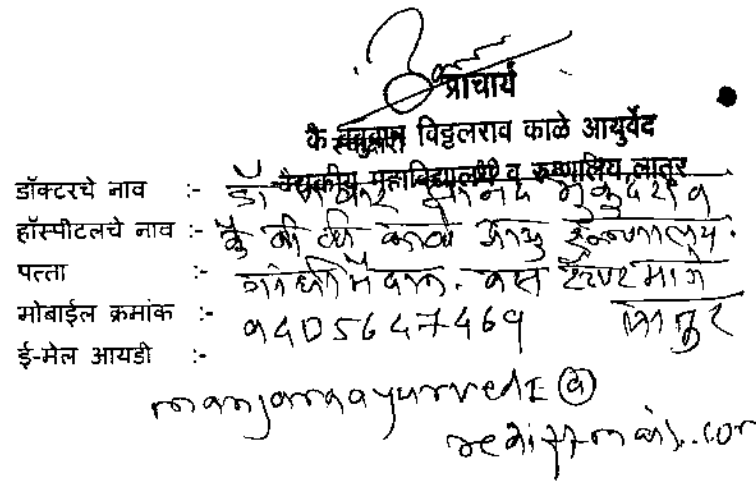 प्राचार्य
कै विठ्ठलराव काळे आयुर्वेद
वैद्यकीय महाविद्यालय व रुग्णालय, लातूर
डॉक्टरचे नाव :- डॉ आनंद मुकुंदराव
हॉस्पीटलचे नाव :- कै बी व्ही काळे आयु रुग्णालय.
पत्ता :- गांधी मैदान. बस स्टॅण्ड मागे
लातुर
मोबाईल क्रमांक :- 9405647469
ई-मेल आयडी :-
manjaraayurved@
rediffmail.com